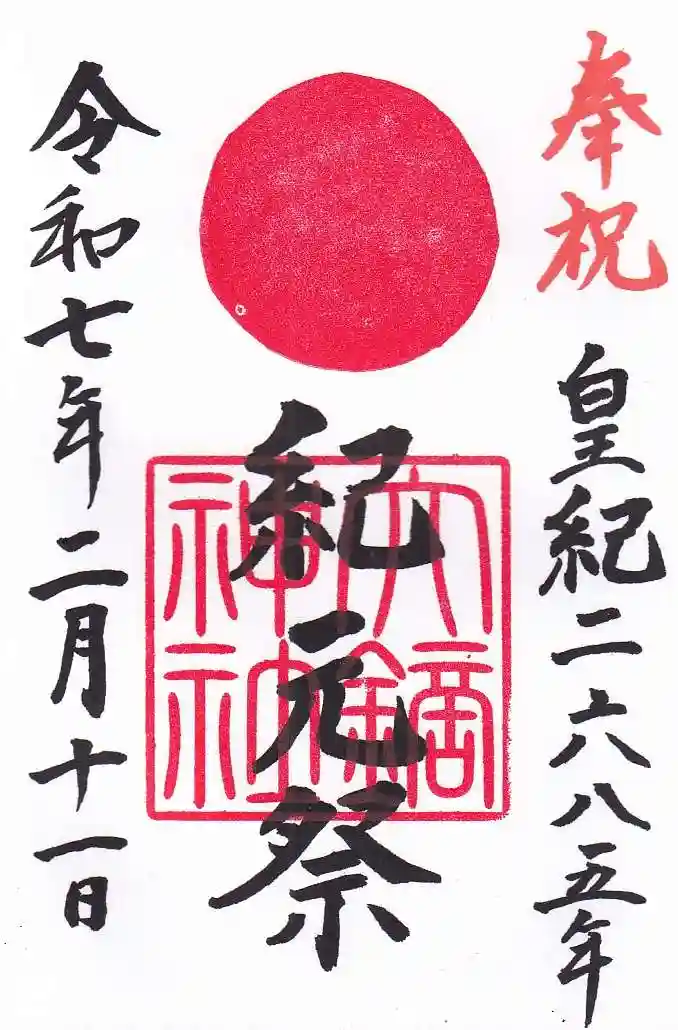 奉祝
皇紀二六八五年
紀元祭
大鏑
神社
令和七年二月十一日